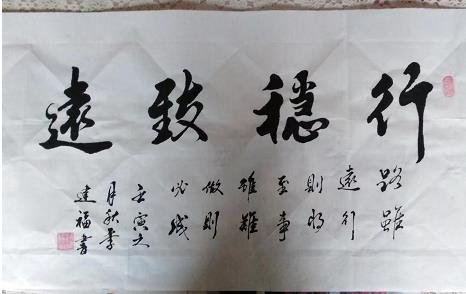 行穩致遠
路雖
遠行
則將
至事
雖難
做則
必成
壬寅之
月秋季
建福書